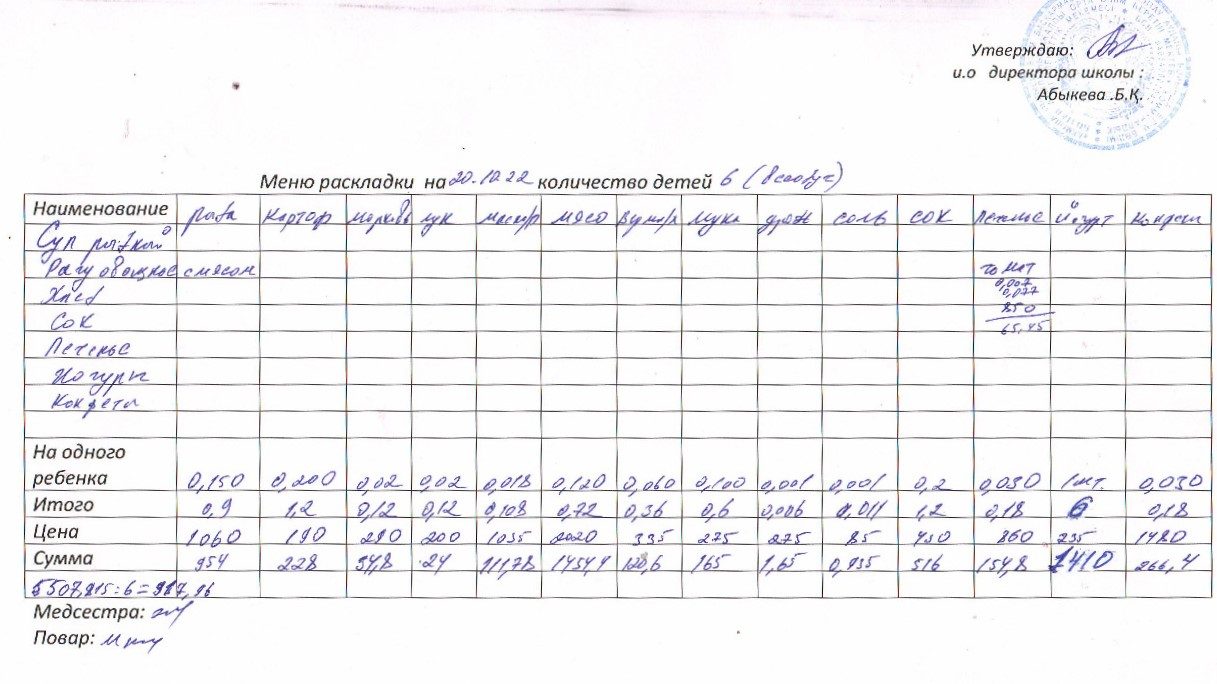 Утверждаю:
и.о директора школы :
Абыкева .Б.Қ.
Меню раскладки на 20.10.22 количество детей 6 (всеобуч)
Наименование рыба картоф морковь лук масло/р мясо вермиш мука дрож соль сок печенье йогурт конфеты
Суп рыбный
Рагу овощное с мясом томат
Хлеб 0,007 0,077
Сок 850
65,45
Печенье
Йогурт
Конфеты
На одного
ребенка 0,150 0,200 0,02 0,02 0,018 0,120 0,060 0,100 0,001 0,001 0,2 0,030 1шт. 0,030
Итого 0,9 1,2 0,12 0,12 0,108 0,72 0,36 0,6 0,006 0,011 1,2 0,18 6 0,18
Цена 1060 190 290 200 1035 2020 335 275 275 85 430 860 235 1480
Сумма 954 228 34,8 24 111,78 1454,4 120,6 165 1,65 0,935 516 154,8 1410 266,4
5507,815:6=917,96
Медсестра:
Повар: